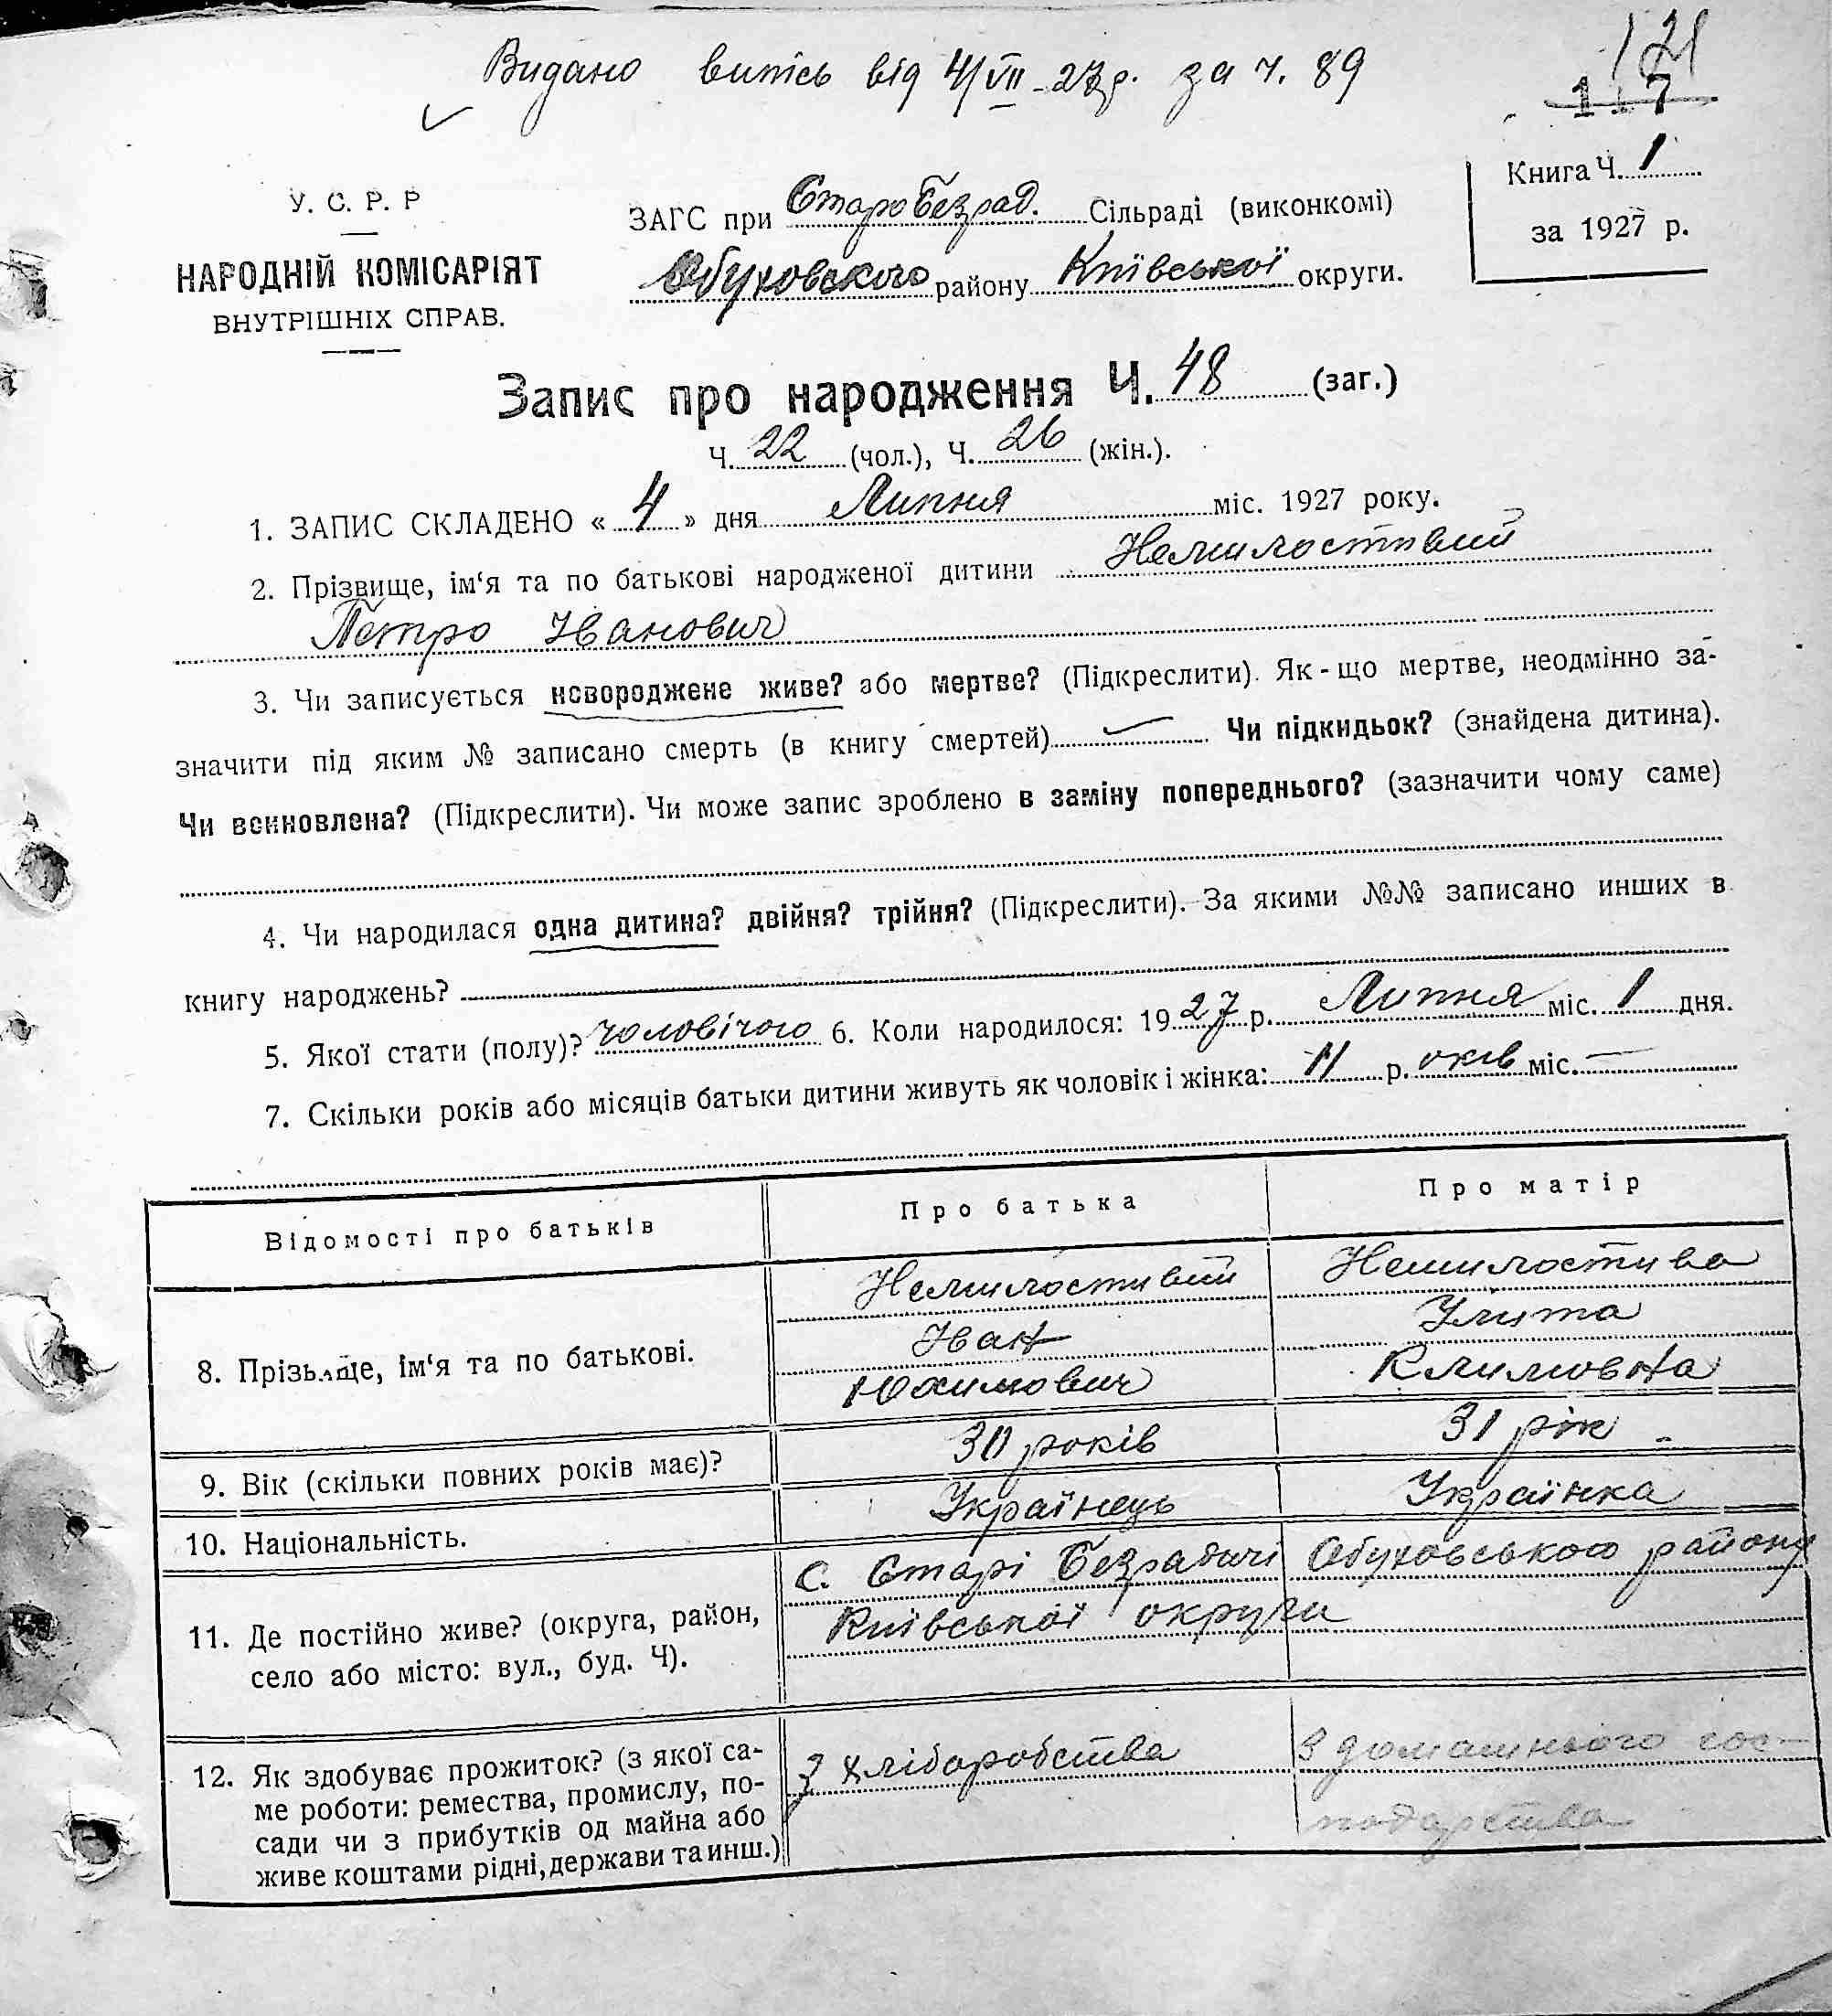 121
Видано випись від 4/VII-27р. за ч. 89
117
У. С. Р. Р
НАРОДНІЙ КОМІСАРІЯТ
ВНУТРІШНІХ СПРАВ.
ЗАГС при СтароБезрад. Сільраді (виконкомі)
Обуховского району Київської округи.
Книга Ч. 1
за 1927 р.
Запис про народження Ч. 48 (заг.)
Ч. 22 (чол.), Ч. 26 (жін.).
1. ЗАПИС СКЛАДЕНО « 4 » дня Липня міс. 1927 року.
2. Прізвище, ім‘я та по батькові народженої дитини Немилостивий
Петро Іванович
3. Чи записується новороджене живе? або мертве? (Підкреслити). Як-що мертве, неодмінно за-
значити під яким № записано смерть (в книгу смертей) Чи підкидьок? (знайдена дитина).
Чи всиновлена? (Підкреслити). Чи може запис зроблено в заміну попереднього? (зазначити чому саме)
4. Чи народилася одна дитина? двійня? трійня? (Підкреслити). За якими №№ записано инших в
книгу народжень?
5. Якої стати (полу)? чоловічого 6. Коли народилося: 1927 р. Липня міс. 1 дня.
7. Скільки років або місяців батьки дитини живуть як чоловік і жінка: 11 р. оків міс. —
Відомості про батьків Про батька Про матір
8. Прізвище, ім‘я та по батькові.
Немилостивий Немилостива
Іван Улита
Юхимович Климовна
9. Вік (скільки повних років має)? 30 років 31 рік
10. Національність. Українець Українка
11. Де постійно живе? (округа, район,
село або місто: вул., буд. Ч).
с. Старі Безрадичі Обуховського району
Київської округи
12. Як здобуває прожиток? (з якої са-
ме роботи: ремества, промислу, по-
сади чи з прибутків од майна або
живе коштами рідні, держави та инш.)
З хліборобства
З домашнього гос-
подарства